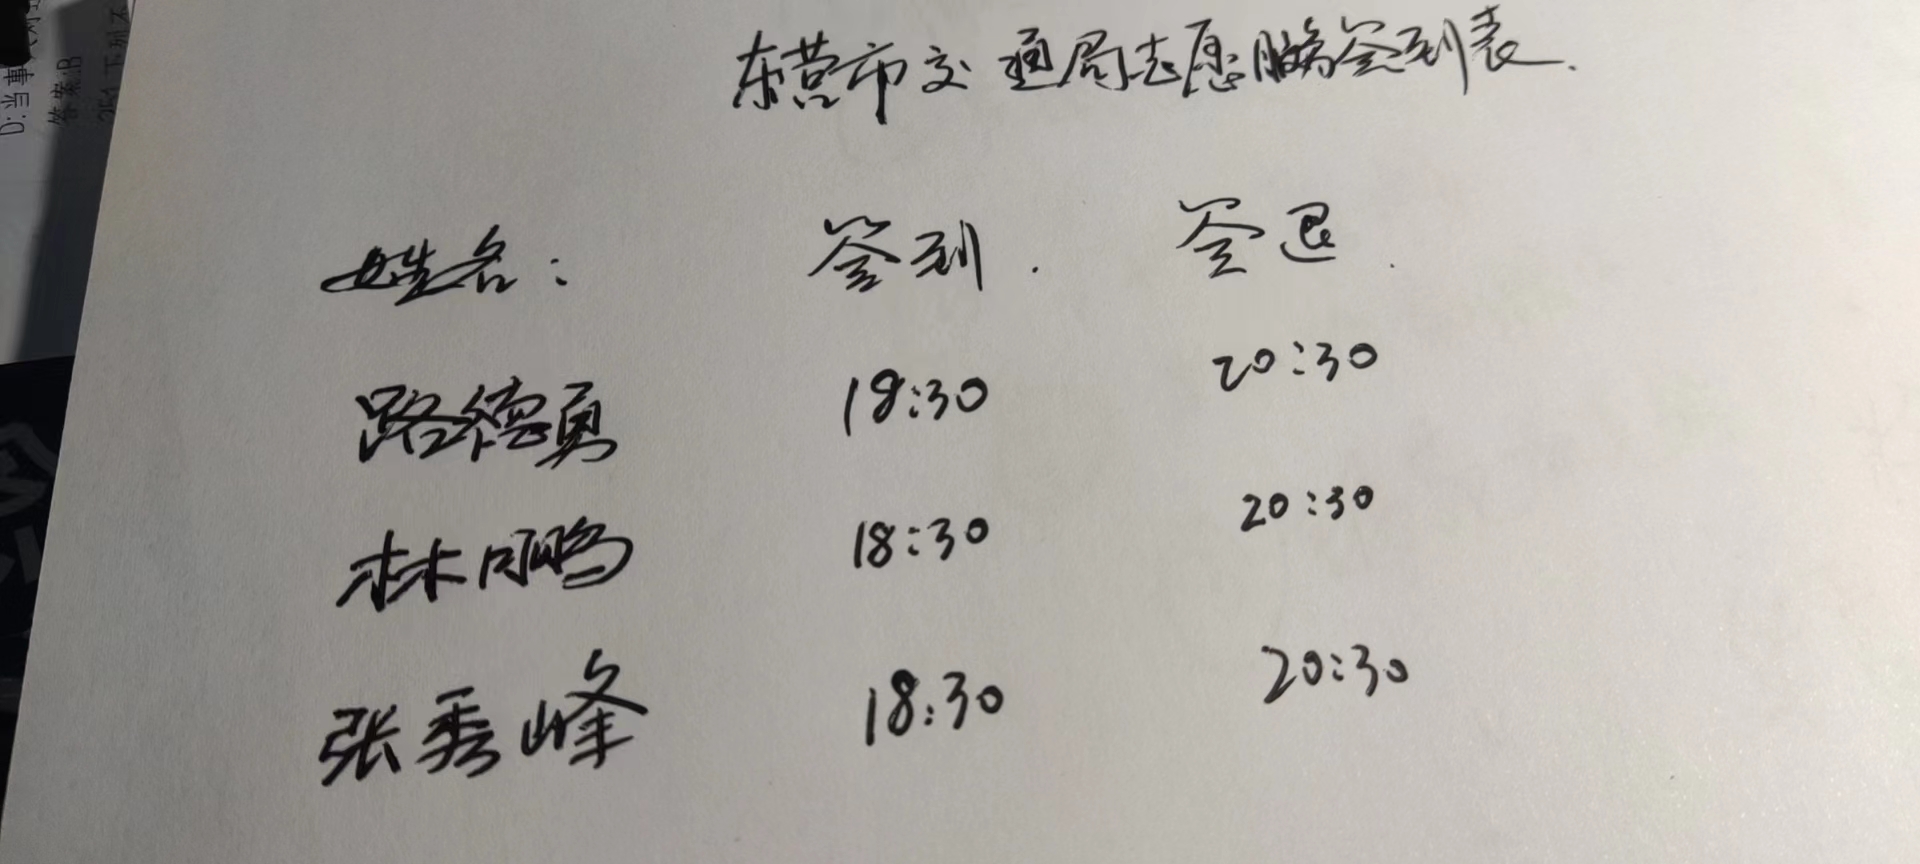 东营市交通局志愿服务签到表.
姓名: 签到. 签退.
路德勇 18:30 20:30
林鹏 18:30 20:30
张秀峰 18:30 20:30
D:当事
答案:B